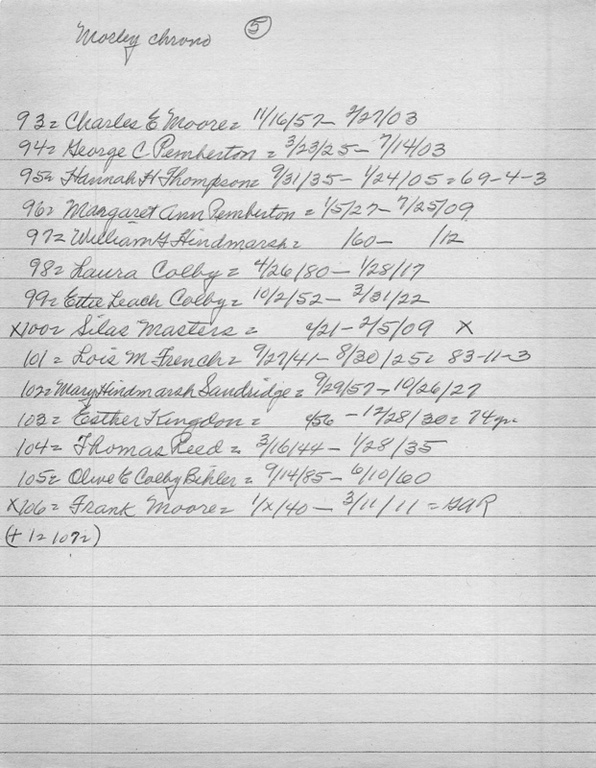 Morley chrono ⑤
93= Charles E Moore= 11/16/57- 2/27/03
94= George C Pemberton = 3/23/25- 7/14/03
95= Hannah H Thompson= 9/31/35- 1/24/05= 69-4-3
96= Margaret Ann Pemberton= 1/5/27- 7/25/09
97= William G Hindmarsh= /60- /12
98= Laura Colby= 4/26/80- 1/28/17
99= Ettie Leach Colby= 10/2/52- 3/31/22
X100= Silas Masters = 4/21- 2/5/09 X
101= Lois M French= 9/27/41- 8/30/25= 83-11-3
102= Mary Hindmarsh Sandridge= 9/29/57- 10/26/27
103= Esther Kingdon= 4/56 - 12/28/30= 74yr.
104= Thomas Reed= 3/16/44- 1/28/35
105= Olive E Colby Bihler= 9/14/85- 6/10/60
X106= Frank Moore= 1/X/40- 3/11/11 = GAR
(+ 1= 107=)